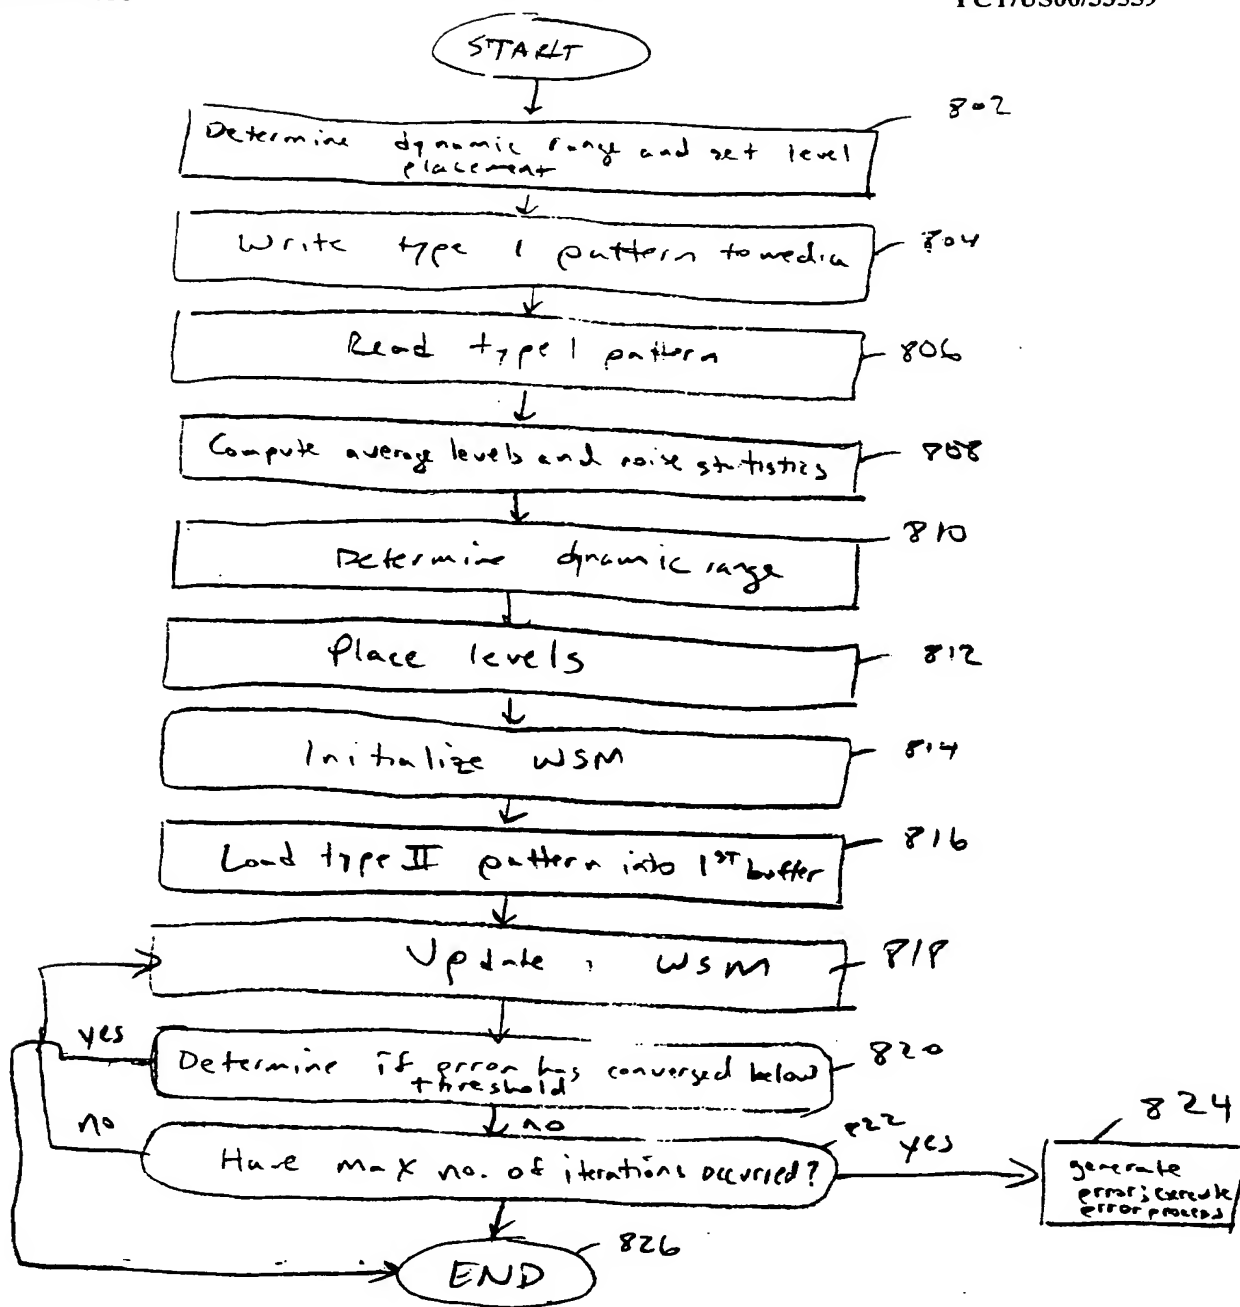 PCT/US00/33339
START
802
Determine dynamic range and set level
placement
Write type 1 pattern to media
804
Read type 1 pattern
806
Compute average levels and noise statistics
808
Determine dynamic range
810
Place levels
812
Initialize WSM
814
Load type II pattern into 1ST buffer
816
Update WSM
818
yes
Determine if error has converged below
threshold
820
no
no
Have max no. of iterations occurried?
822
yes
824
generate
error; execute
error process
826
END